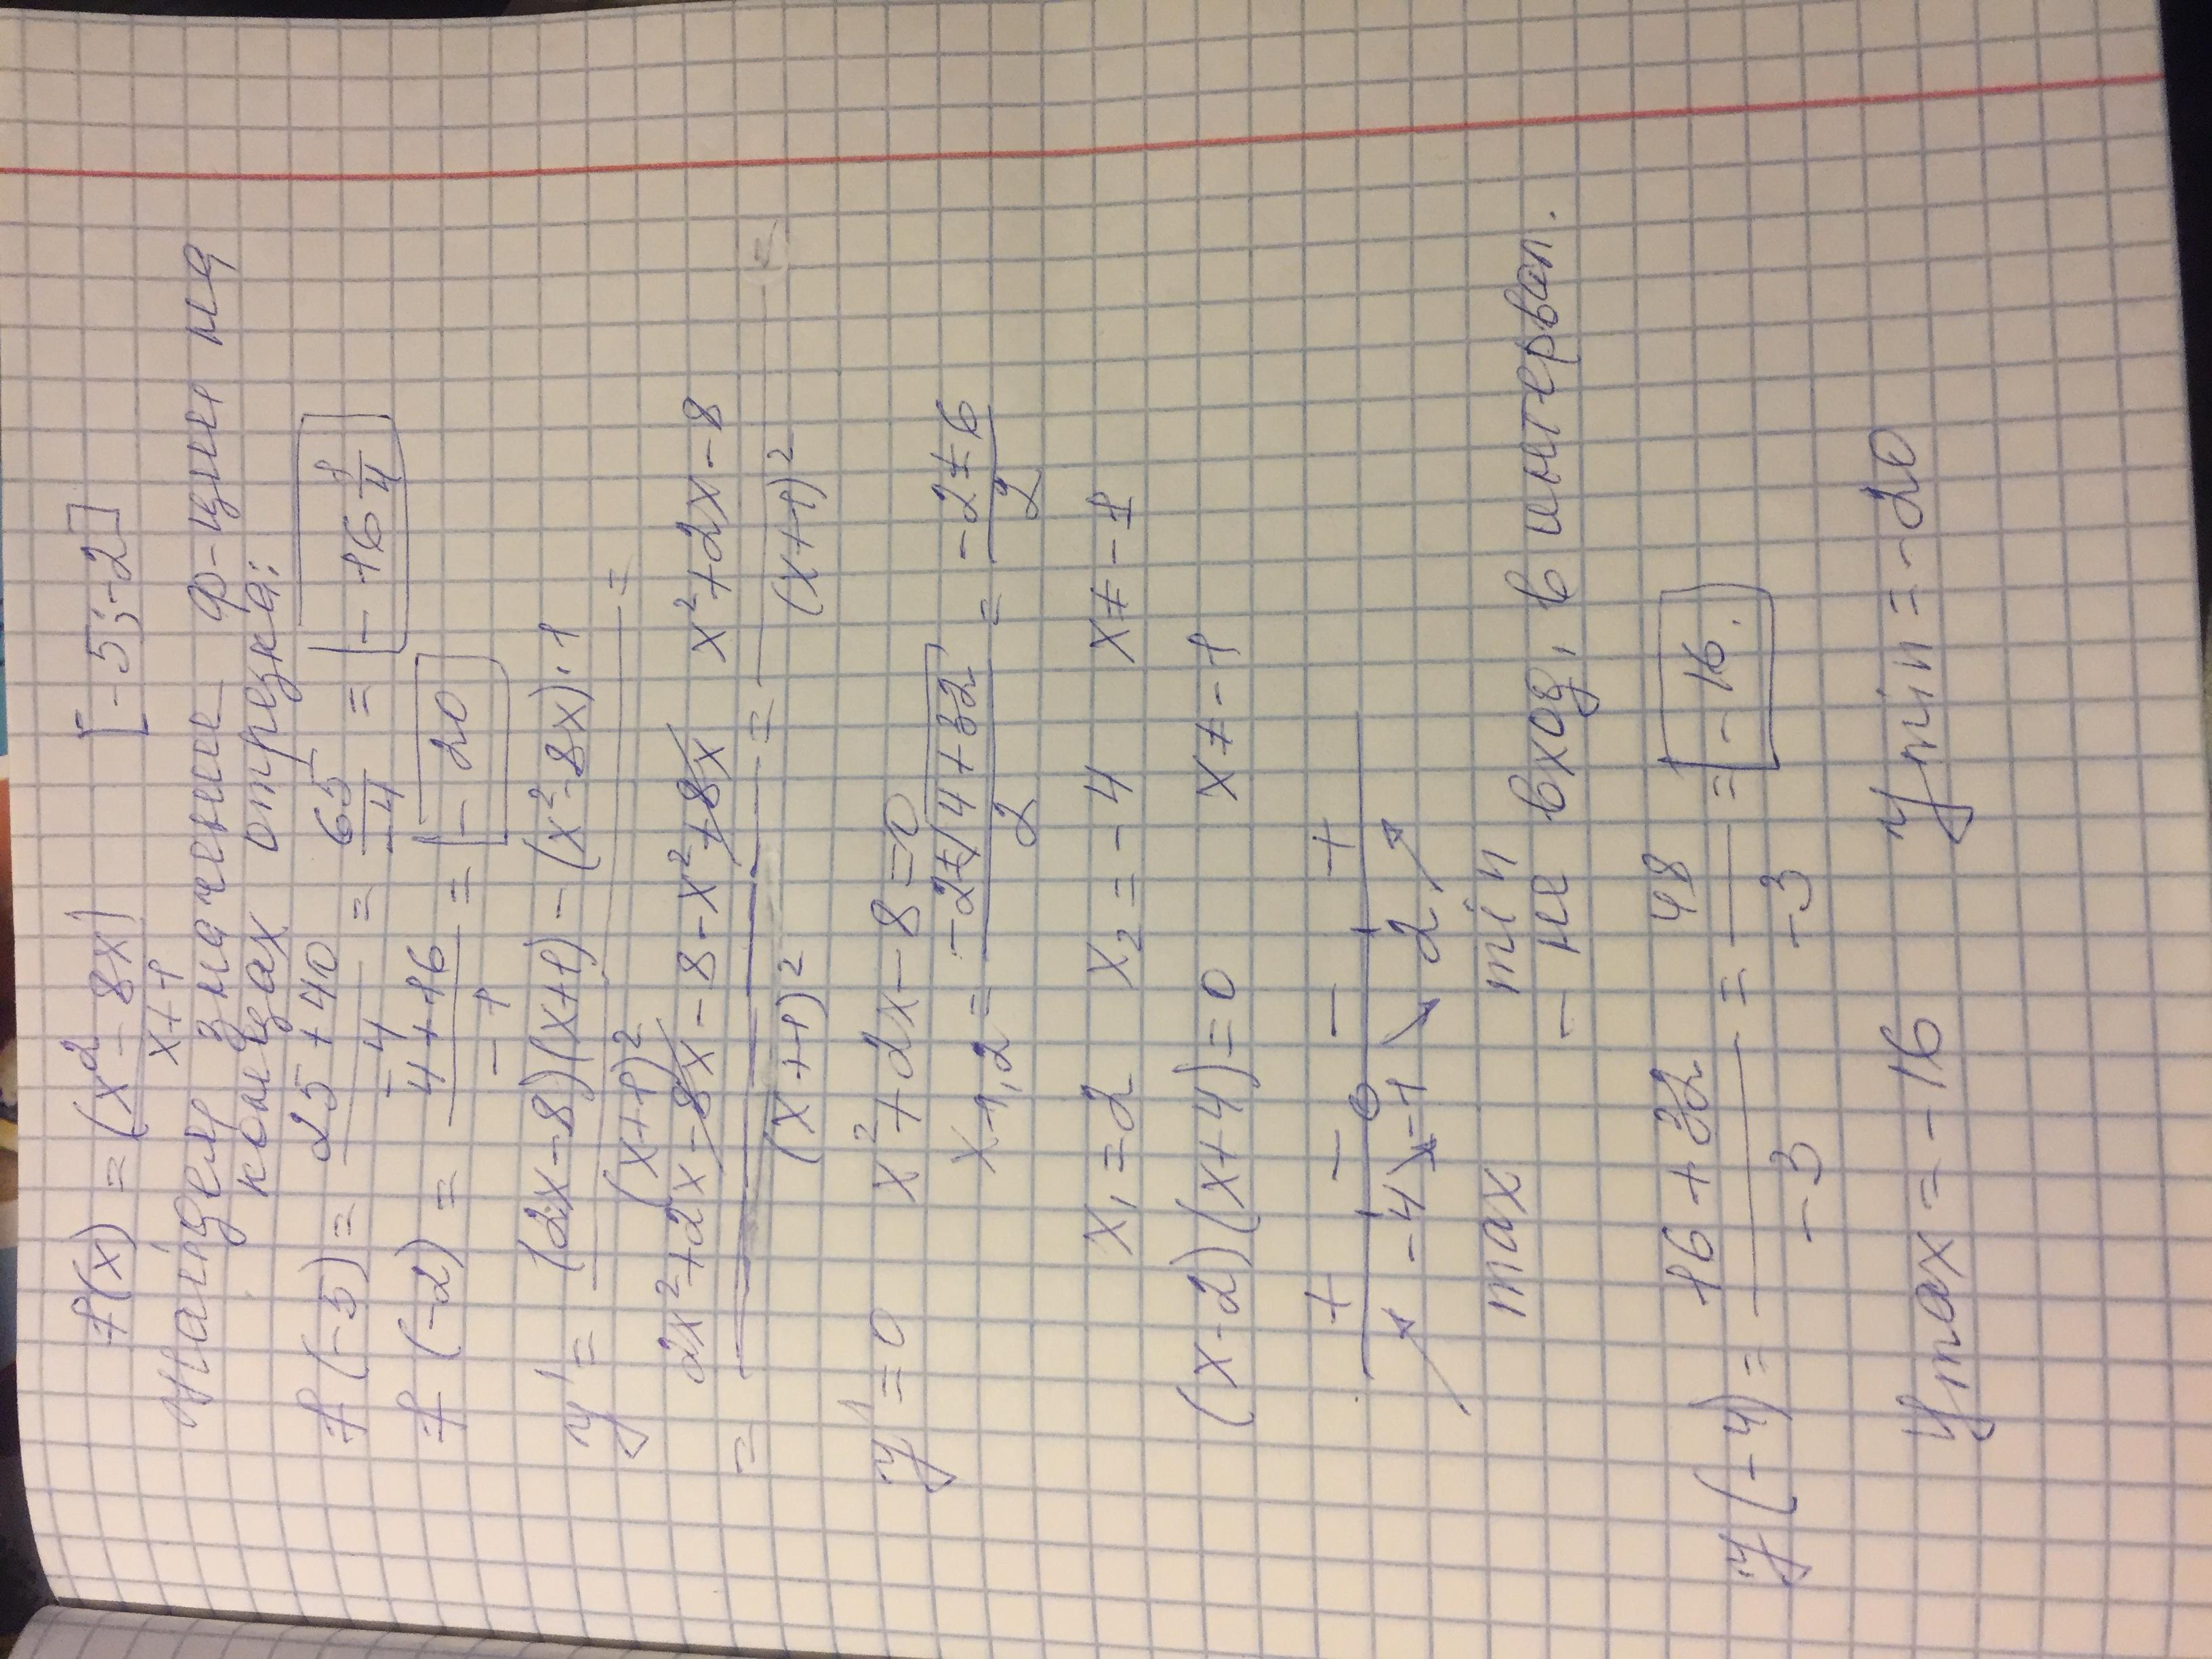 f(x) = (x² - 8x) / x+1   [-5; -2]
Найдем значение ф-ции на
концах отрезка:
f(-5) = 25 + 40 / -4 = 65 / -4 = -16 1/4
f(-2) = 4 + 16 / -1 = -20
y' = (2x - 8)(x+1) - (x² - 8x)·1 / (x+1)² =
= 2x² + 2x - 8x - 8 - x² + 8x / (x+1)² = x² + 2x - 8 / (x+1)²
y' = 0   x² + 2x - 8 = 0
x1,2 = -2±√4+32 / 2 = -2±6 / 2
x₁ = 2   x₂ = -4   x ≠ -1
(x-2)(x+4) = 0   x ≠ -1
+ - - +
-4 -1 2
max min
- не вход, в интервал.
y(-4) = 16 + 32 / -3 = 48 / -3 = -16.
ymax = -16   ymin = -20